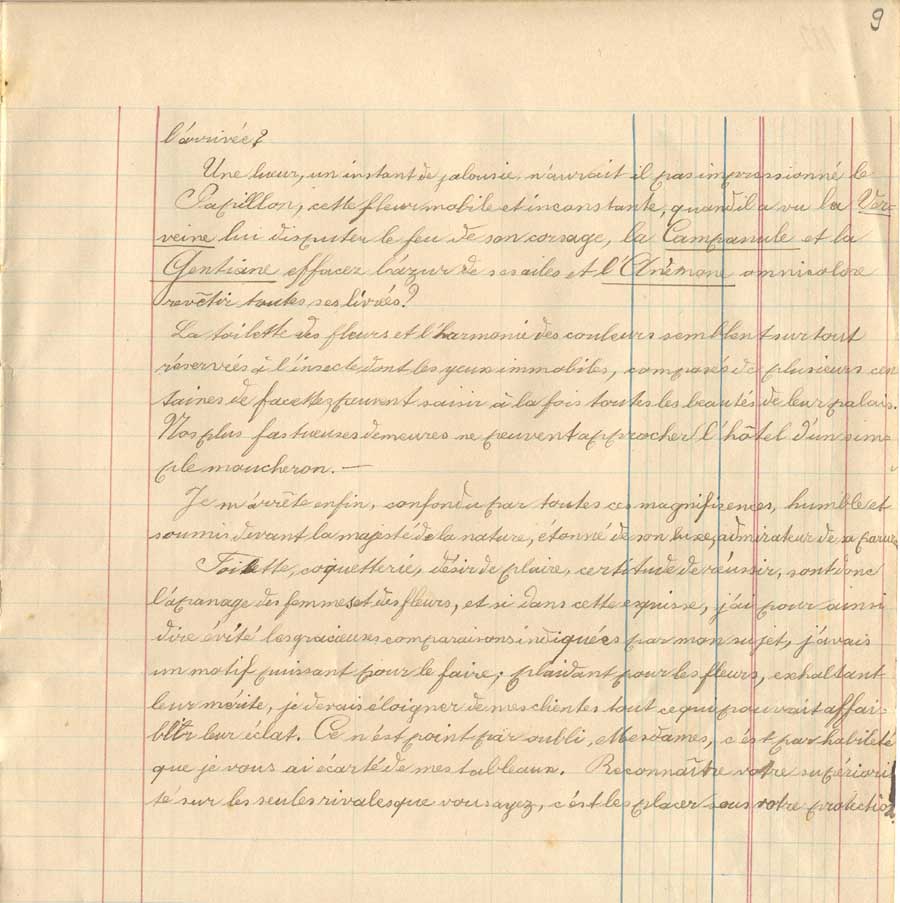 9
l'arrivée?
Une lueur, un instant de jalousie n'aurait il pas impressionné le
Papillon, cette fleur mobile et inconstante, quand il a vu la Ver-
veine lui disputer le feu de son corsage, la Campanule et la
Gentiane effacer l'azur de ses ailes et l'Anémone omnicolore
revêtir toutes ses livrées?
La toilette des fleurs et l'harmonie des couleurs semblent surtout
réservées à l'insecte dont les yeux immobiles, composés de plusieurs cen
taines de facettes peuvent saisir à la fois toutes les beautés de leur palais.
Nos plus fastueuses demeures ne peuvent approcher l'hôtel d'un sim-
ple moucheron. —
Je m'arrête enfin, confondu par toutes ces magnifisences, humble et
soumis devant la majesté de la nature, étonné de son luxe, admirateur de sa parure
Toilette, coquetterie, désir de plaire, certitude de réussir, sont donc
l'apanage des femmes et des fleurs, et si dans cette esquisse, j'ai pour ainsi
dire évité les gracieuses comparaisons indiquées par mon sujet, j'avais
un motif puissant pour le faire; plaidant pour les fleurs, exhaltant
leur mérite, je devais éloigner de mes clientes tout ce qui pouvait affai-
blir leur éclat. Ce n'est point par oubli, Mesdames, c'est par habileté
que je vous ai écarté de mes tableaux. Reconnaître votre supériori
té sur les seules rivales que vous ayez, c'est les placer sous votre protection